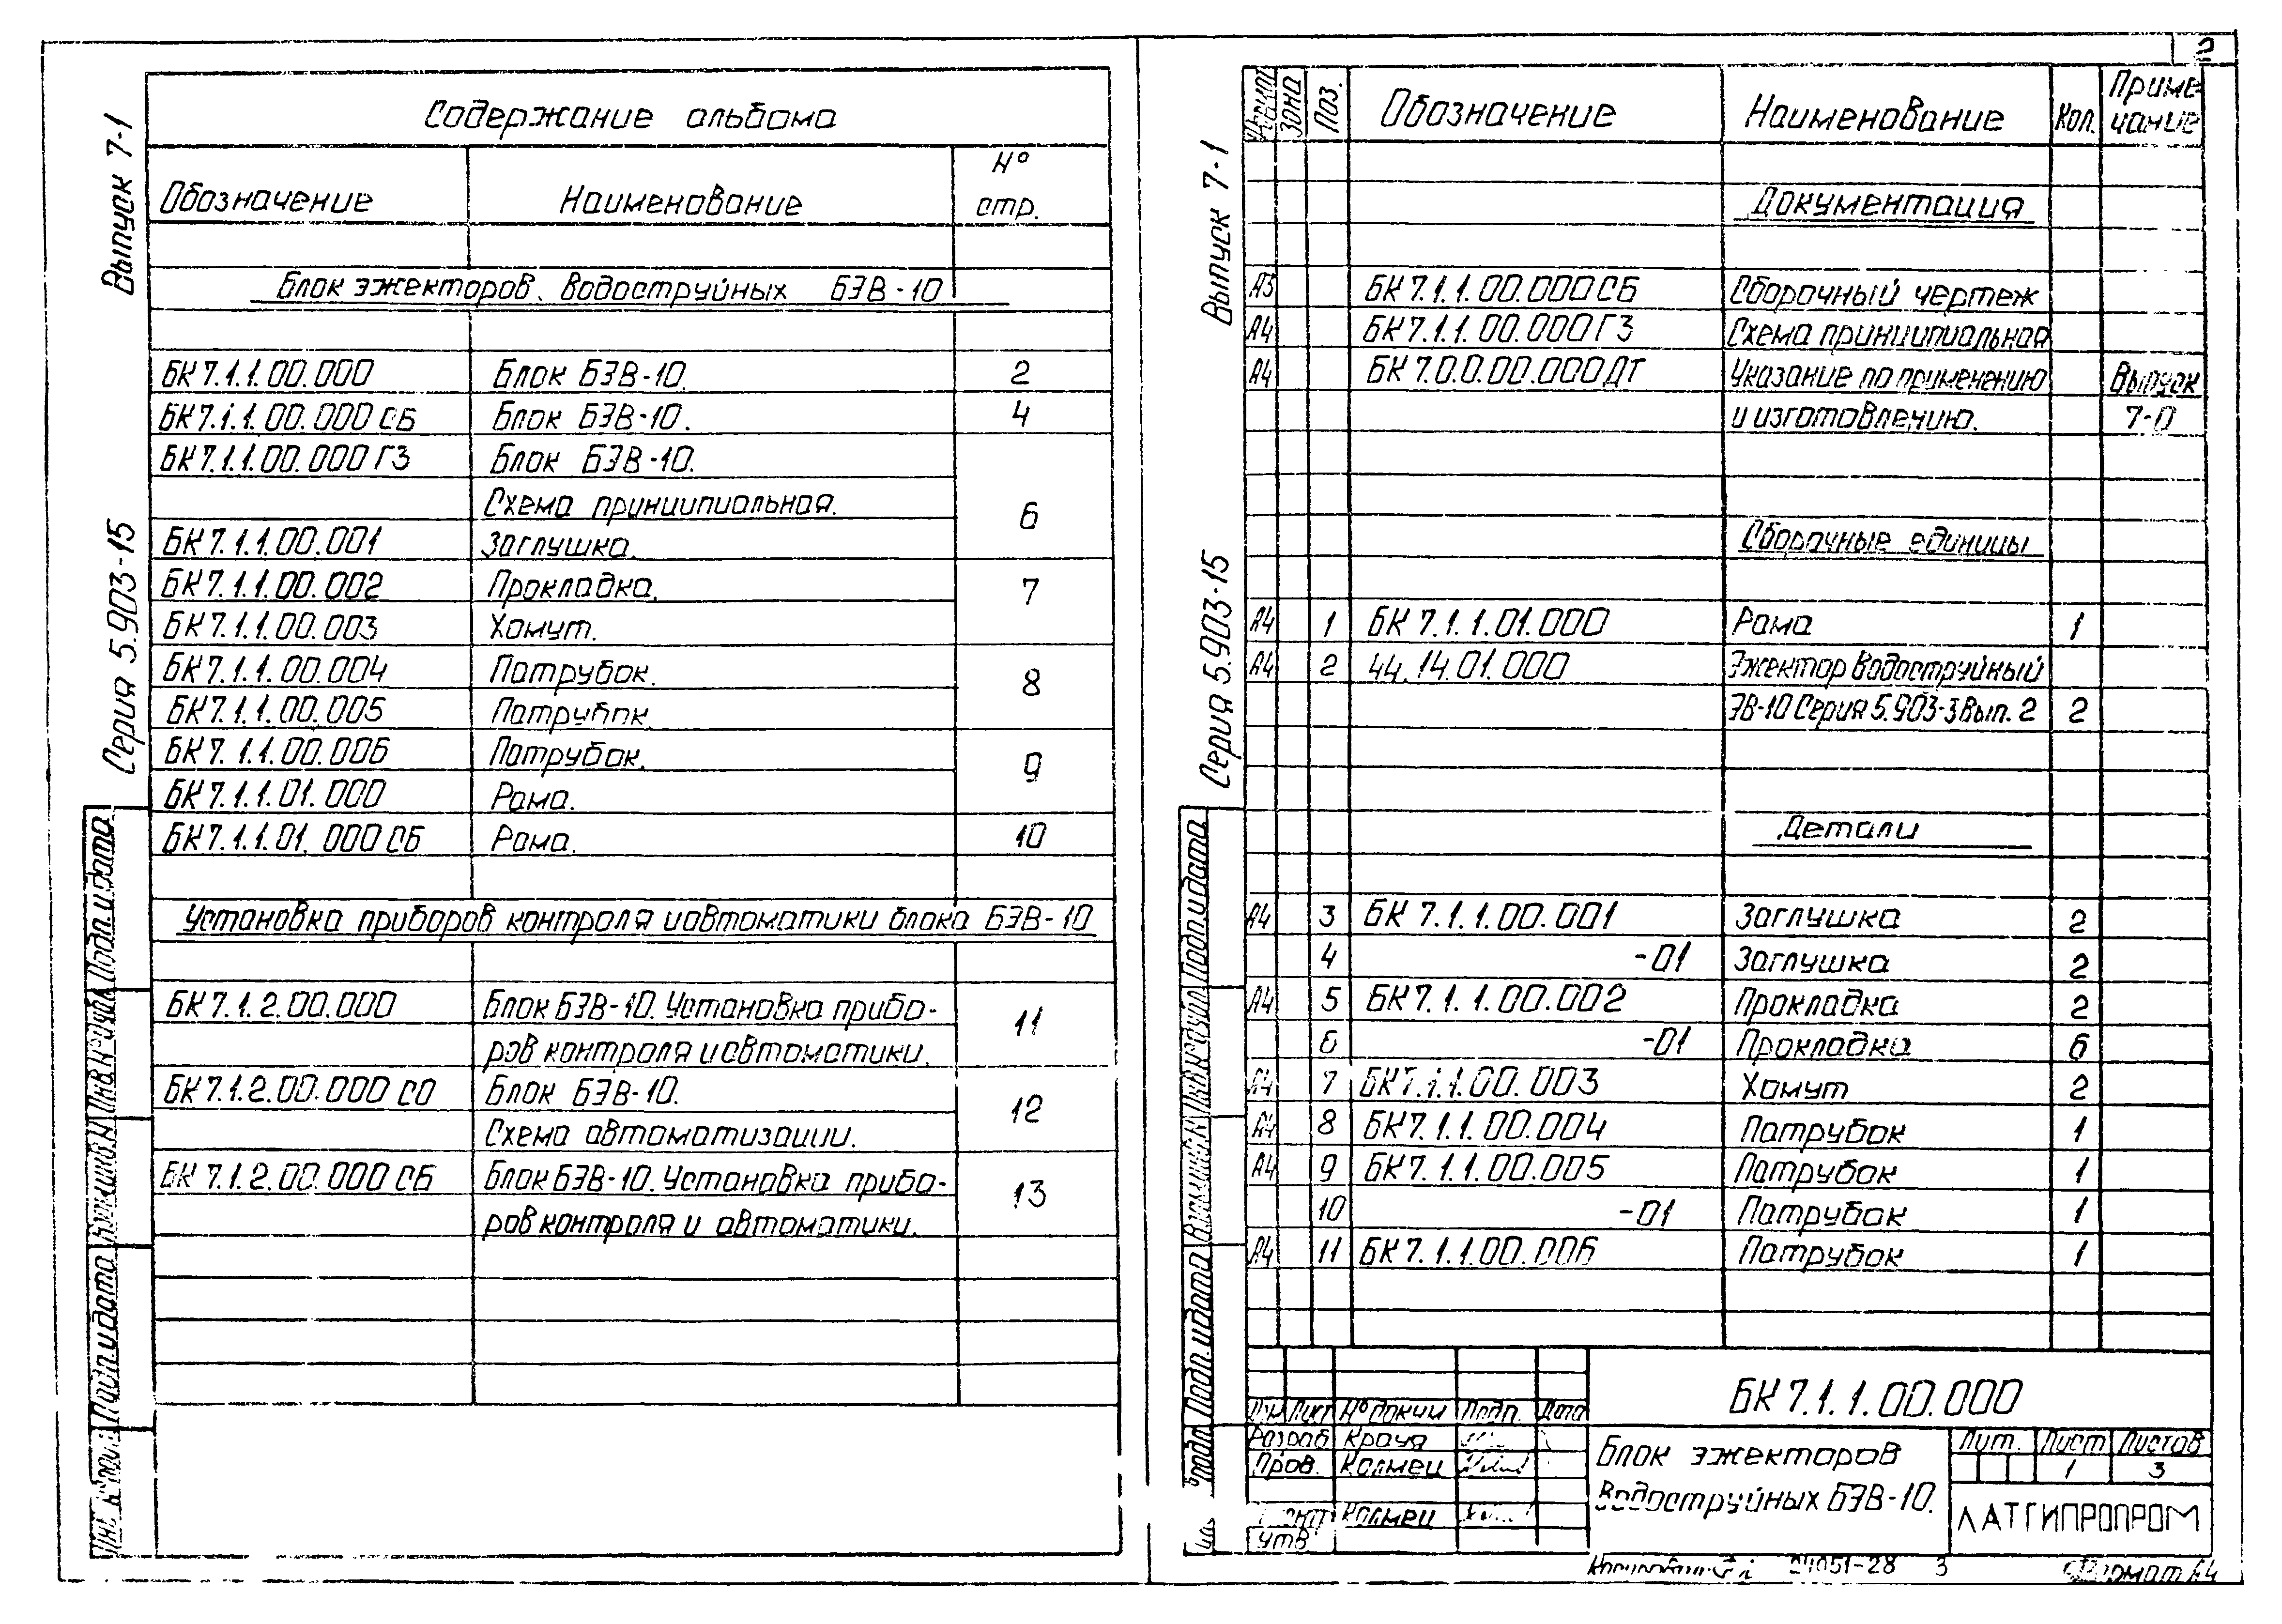 2
Выпуск 7-1
Серия 5.903-15
Содержание альбома
Обозначение Наименование № стр.
Блок эжекторов водоструйных БЭВ-10
БК 7.1.1.00.000 Блок БЭВ-10. 2
БК 7.1.1.00.000 СБ Блок БЭВ-10. 4
БК 7.1.1.00.000 ГЗ Блок БЭВ-10.
Схема принципиальная. 6
БК 7.1.1.00.001 Заглушка.
БК 7.1.1.00.002 Прокладка. 7
БК 7.1.1.00.003 Хомут.
БК 7.1.1.00.004 Патрубок. 8
БК 7.1.1.00.005 Патрубок.
БК 7.1.1.00.006 Патрубок. 9
БК 7.1.1.01.000 Рама.
БК 7.1.1.01.000 СБ Рама. 10
Установка приборов контроля и автоматики блока БЭВ-10
БК 7.1.2.00.000 Блок БЭВ-10. Установка прибо-
ров контроля и автоматики. 11
БК 7.1.2.00.000 СО Блок БЭВ-10.
Схема автоматизации. 12
БК 7.1.2.00.000 СБ Блок БЭВ-10. Установка прибо-
ров контроля и автоматики. 13
Подп. и дата
Подп. и дата
Выпуск 7-1
Серия 5.903-15
Формат Зона Поз. Обозначение Наименование Кол. Приме-
чание
Документация
А3 БК 7.1.1.00.000 СБ Сборочный чертеж
А4 БК 7.1.1.00.000 ГЗ Схема принципиальная
А4 БК 7.0.0.00.000 ДТ Указание по применению Выпуск
и изготовлению. 7-0
Сборочные единицы
А4 1 БК 7.1.1.01.000 Рама 1
А4 2 44.14.01.000 Эжектор водоструйный
ЭВ-10 Серия 5.903-3 Вып. 2 2
Детали
А4 3 БК 7.1.1.00.001 Заглушка 2
4 -01 Заглушка 2
А4 5 БК 7.1.1.00.002 Прокладка 2
6 -01 Прокладка 6
А4 7 БК 7.1.1.00.003 Хомут 2
А4 8 БК 7.1.1.00.004 Патрубок 1
А4 9 БК 7.1.1.00.005 Патрубок 1
10 -01 Патрубок 1
А4 11 БК 7.1.1.00.006 Патрубок 1
Подп. и дата
Подп. и дата
БК 7.1.1.00.000
Изм Лист № докум Подп. Дата
Разраб Крауя
Пров. Калмец
Калмец
Утв
Блок эжекторов
водоструйных БЭВ-10.
Лит. Лист Листов
1 3
ЛАТГИПРОПРОМ
24051-28 3 Формат А4